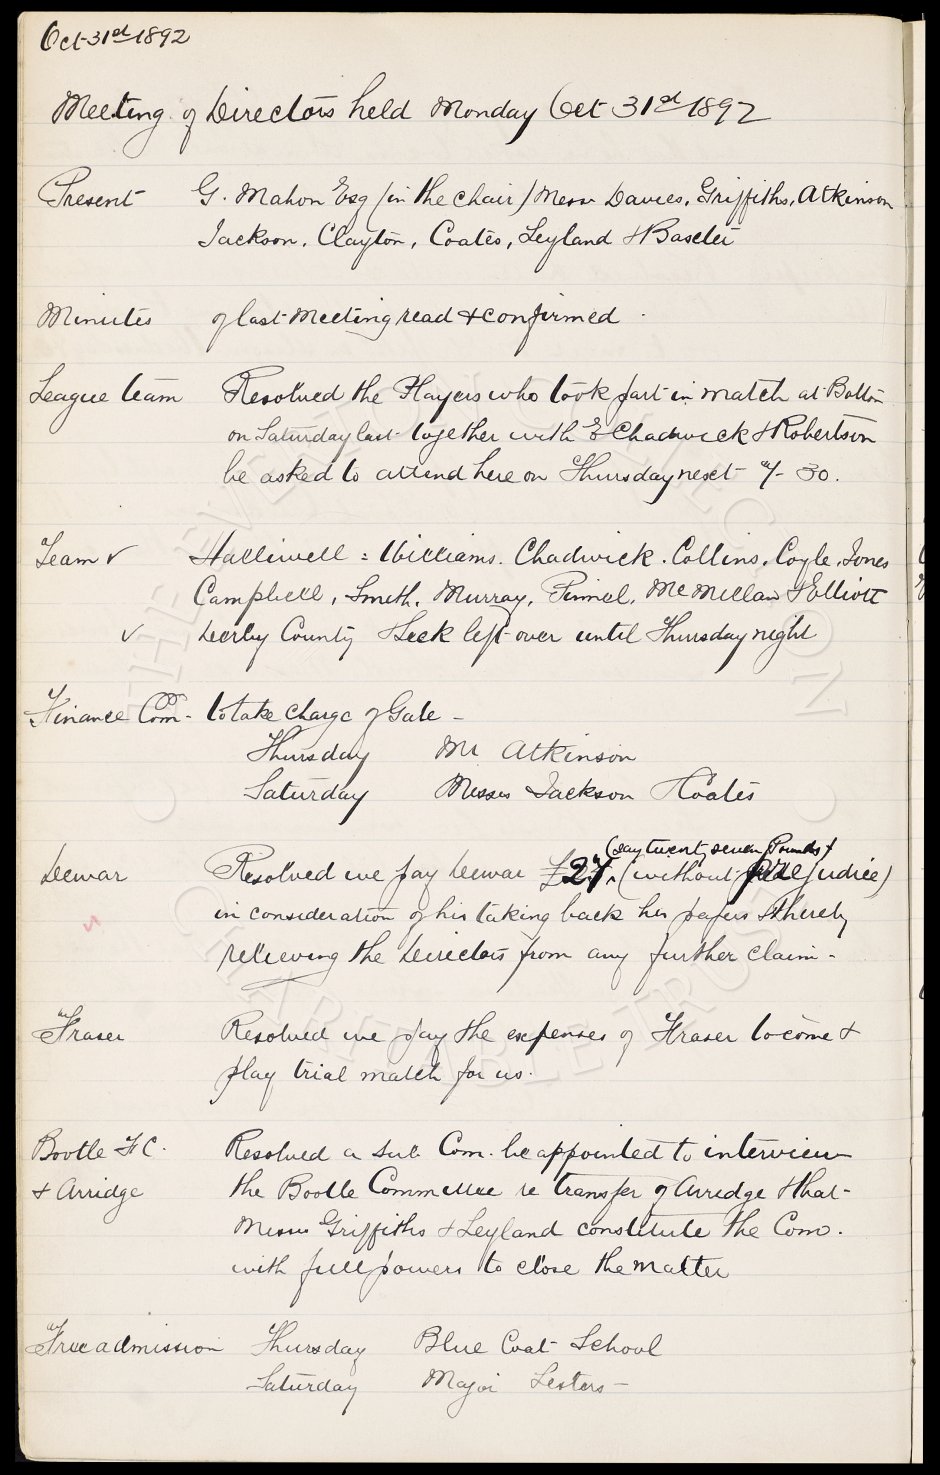 Oct 31st 1892
Meeting of Directors held Monday Oct 31st 1892
Present G. Mahon Esq (in the chair) Messrs Davies, Griffiths, Atkinson
Jackson, Clayton, Coates, Leyland & Baxter
Minutes of last meeting read & confirmed
League team Resolved the Players who took part in match at Bolton
on Saturday last together with E Chadwick & Robertson
be asked to attend here on Thursday next 7-30.
Team v Halliwell = Williams. Chadwick. Collins, Coyle, Jones
Campbell, Smith, Murray, Pinnel, McMillan & Elliott
v Derby County & Leek left over until Thursday night
Finance Com - to take charge of Gate -
Thursday Mr Atkinson
Saturday Messrs Jackson & Coates
(say twenty seven Pounds)
Dewar Resolved we pay Dewar £27. (without prejudice)
in consideration of his taking back his papers & thereby
relieving the Directors from any further claim -
Fraser Resolved we pay the expenses of Fraser to come &
play trial match for us.
Bootle F C. Resolved a sub Com. be appointed to interview
& Arridge the Bootle Committee re transfer of Arridge & that
Messrs Griffiths & Leyland constitute the Com.
with full powers to close the matter
Free admission Thursday Blue Coat School
Saturday Major Lesters -